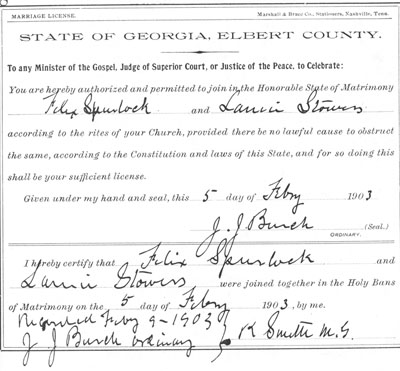 MARRIAGE LICENSE. Marshall & Bruce Co., Stationers, Nashville, Tenn.
STATE OF GEORGIA, ELBERT COUNTY.
To any Minister of the Gospel, Judge of Superior Court, or Justice of the Peace, to Celebrate:
You are hereby authorized and permitted to join in the Honorable State of Matrimony
Felix Spurlock and Stowers
according to the rites of your Church, provided there be no lawful cause to obstruct
the same, according to the Constitution and laws of this State, and for so doing this
shall be your sufficient license.
Given under my hand and seal, this 5 day of Feby 1903
J. J. Burch (Seal.)
ORDINARY.
I hereby certify that Felix Spurlock and
Stowers were joined together in the Holy Bans
of Matrimony on the 5 day of Feby 1903, by me.
Recorded Feby 9-1903
J J Burch ordinary R Smith M.G.